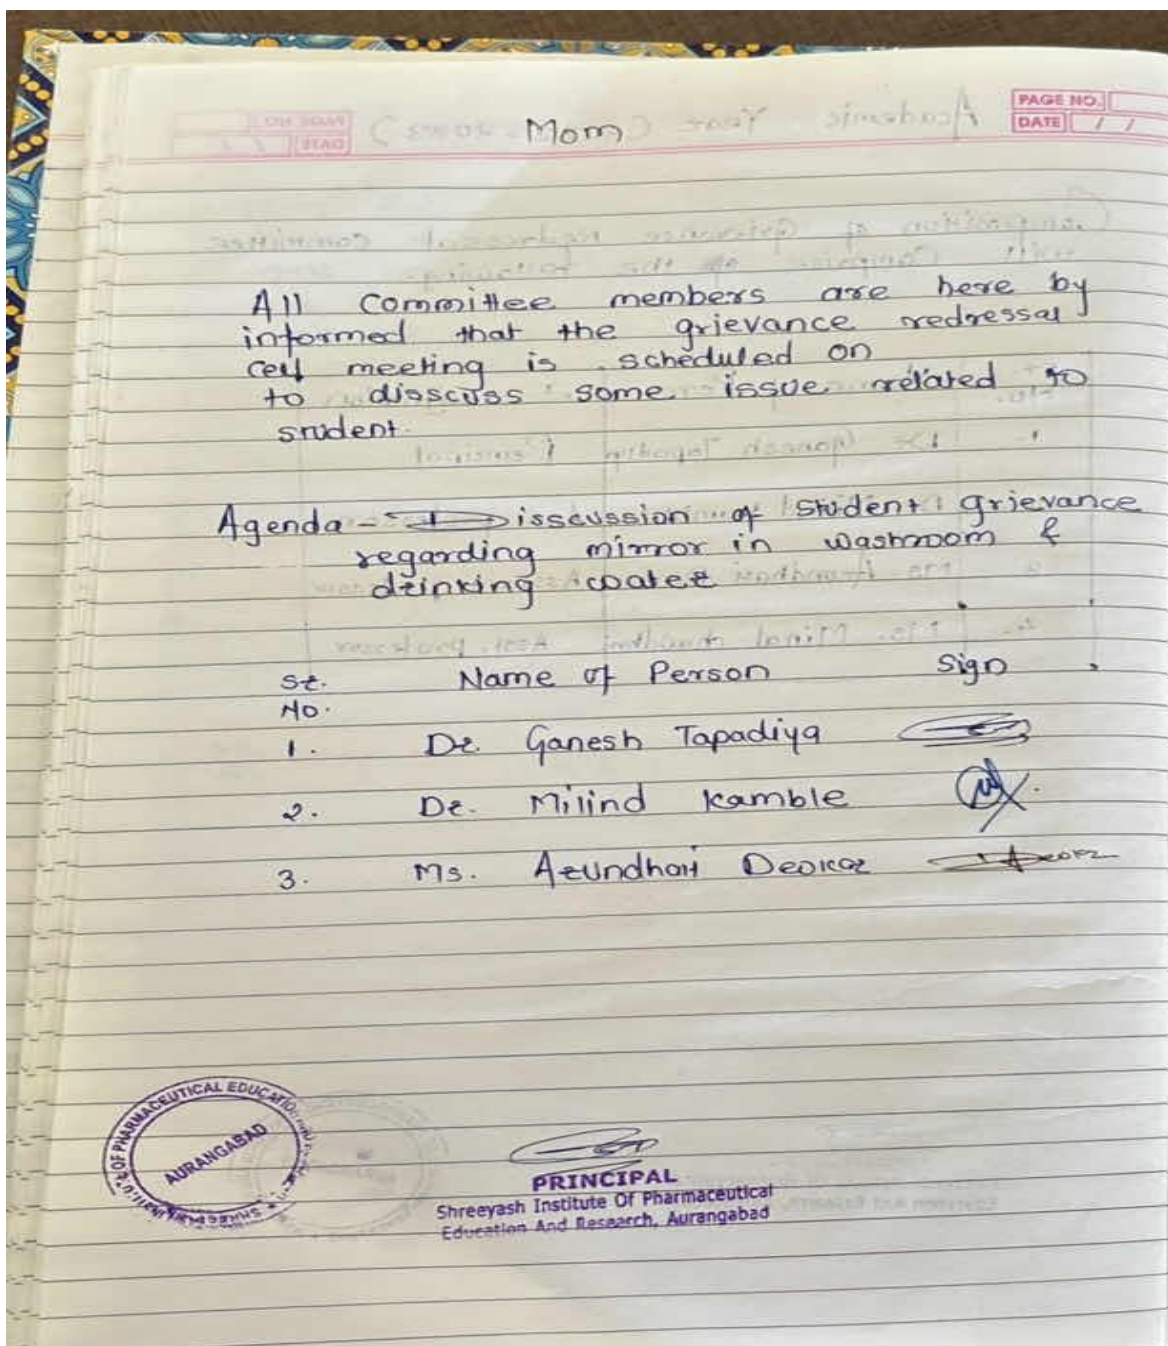 PAGE NO.
DATE / /
Mom
All Committee members are here by
informed that the grievance redressal
cell meeting is scheduled on
to disscuss some issue related to
student.
Agenda - Disscussion of student grievance
regarding mirror in washroom &
drinking water
Sr. Name of Person Sign
No.
1. Dr. Ganesh Tapadiya
2. Dr. Milind Kamble
3. Ms. Arundhati Deokar
INSTITUTE OF PHARMACEUTICAL EDUCATION
AURANGABAD
PRINCIPAL
Shreeyash Institute Of Pharmaceutical
Education And Research, Aurangabad